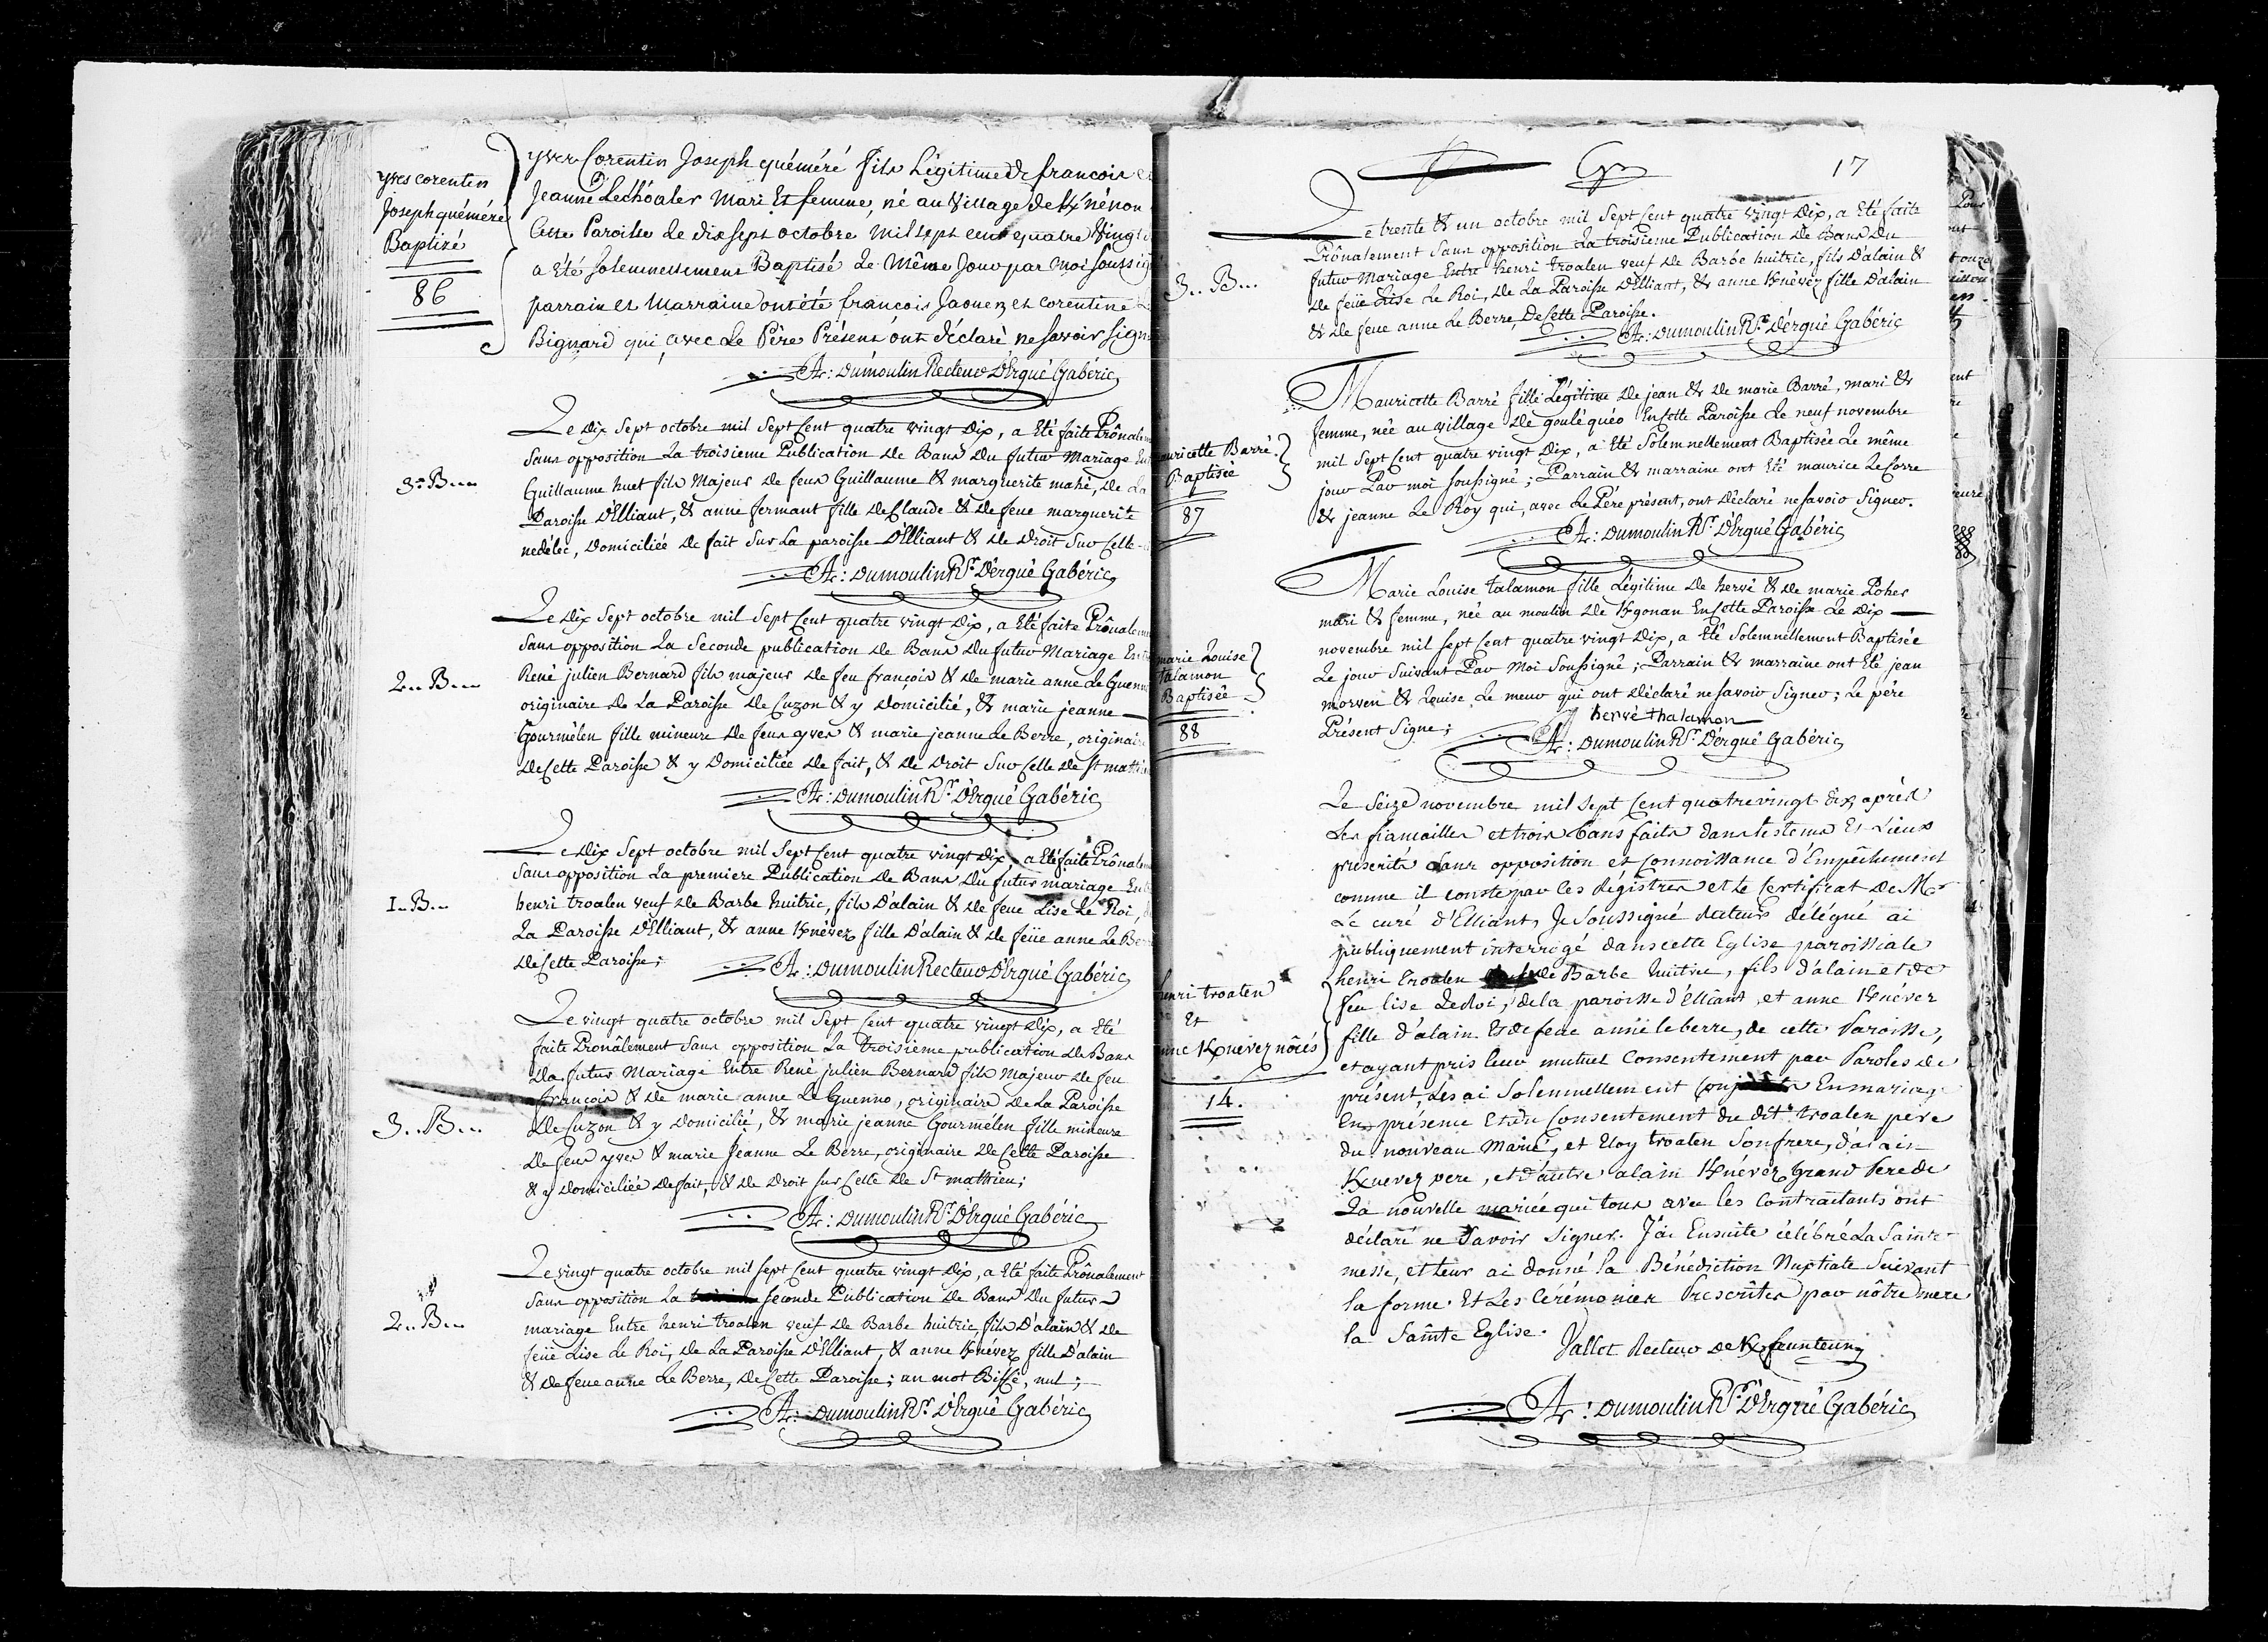 yves corentin
Joseph quéméré
Baptizé
86
yves Corentin Joseph quéméré fils Légitime de françois et
Jeanne Lechóaler Mari Et femme, né au Village de
Cette Paroisse Le dix sept octobre mil sept cent quatre Vingt
a été solemnellement Baptisé Le Même Jour par moi soussig
parrain et Marraine ont été françois Jaouen et corentine
Bignard qui, avec Le Père Présent ont déclaré ne savoir sign
A: Dumoulin Recteur D'Ergué Gabéric
3e B...
Le Dix Sept octobre mil Sept Cent quatre vingt Dix, a Eté faite Prônalem
Sans opposition La troisieme Publication de Bans Du futur Mariage En
Guillaume huet fils Majeur de feus Guillaume & marguerite mahé, de La
Paroisse D'Elliant, & anne fermant fille de Claude & de feue marguerite
nedélec, Domiciliée de fait Sur La paroisse D'Elliant & de Droit Sur Celle
A: Dumoulin Rr. D'ergué Gabéric
2.. B...
Le Dix Sept octobre mil Sept Cent quatre vingt Dix, a Eté faite Prônalem
Sans opposition La Seconde publication de Bans Du futur Mariage Ent
René julien Bernard fils majeur de feu françois & de marie anne Le Guenn
originaire de La Paroisse de Cuzon & y Domicilié, & marie jeanne
Gourmélen fille mineure de feus yves & marie jeanne Le Berre, originai
de Cette Paroisse & y Domiciliée de fait, & de Droit Sur Celle de St mathi
A: Dumoulin Rr. D'Ergué Gabéric
1.. B...
Le Dix Sept octobre mil Sept Cent quatre vingt Dix, a Eté faite Prônalem
Sans opposition La premiere Publication de Bans Du futur mariage Ent
henri troalen veuf de Barbe huitric, fils D'alain & de feue Lise Le Roi,
La Paroisse D'Elliant, & anne Kknévez fille D'alain & de feüe anne Le Ber
de Cette Paroisse;
A: Dumoulin Recteur D'Ergué Gabéric
3.. B...
Le vingt quatre octobre mil Sept Cent quatre vingt Dix, a Eté
faite Pronâlement Sans opposition La troisieme publication de Bans
Du futur Mariage Entre René julien Bernard fils Majeur de feu
françois & de marie anne Le Guenno, originaire de La Paroisse
de Cuzon & y Domicilié, & marie jeanne Gourmélen fille mineure
de feus yves & marie Jeanne Le Berre, originaire de Cette Paroisse
& y Domiciliée de fait, & de Droit Sur Celle de St mathieu;
A: Dumoulin Rr. D'Ergué Gabéric
2.. B...
Le vingt quatre octobre mil Sept Cent quatre vingt Dix, a Eté faite Prônalement
Sans opposition La Seconde Publication de Bans Du futur
mariage Entre henri troalen veuf de Barbe huitric fils D'alain & de
feüe Lise Le Roi, de La Paroisse D'Elliant, & anne Kknévez fille D'alain
& de feue anne Le Berre, de Cette Paroisse; un mot Biffé, nul;
A: Dumoulin Rr. D'Ergué Gabéric
17
3.. B...
Le trente & un octobre mil Sept Cent quatre vingt Dix, a Eté faite
Prônalement Sans opposition La troisieme Publication de Bans Du
futur Mariage Entre henri troalen veuf de Barbe huitric, fils D'alain &
de feüe Lise Le Roi, de La Paroisse D'Elliant, & anne Kknévez fille D'alain
& de feue anne Le Berre, de Cette Paroisse.
A: Dumoulin Rr. D'ergué Gabéric
auricette Barré
Baptisée
87
Mauricette Barré fille Légitime de jean & de marie Barré, mari &
femme, née au village de gouléquéo En Cette Paroisse Le neuf novembre
mil Sept Cent quatre vingt Dix, a Eté Solemnellement Baptisée Le même
jour Par moi soussigné; Parrain & marraine ont Eté maurice Le Corre
& jeanne Le Roy qui, avec Le Pére présent, ont Déclaré ne savoir Signer.
A: Dumoulin Rr. D'Ergué Gabéric
marie Louise
talamon
Baptisée
88
Marie Louise talamon fille Légitime de hervé & de marie Poher
mari & femme, née au moulin de Kkgonan En Cette Paroisse Le Dix
novembre mil Sept Cent quatre vingt Dix, a Eté Solemnellement Baptisée
Le jour Suivant Par Moi Soussigné; Parrain & marraine ont Eté jean
morven & Louise Le meur qui ont Déclaré ne savoir Signer; Le pére
Présent Signe;
hervé thalamon
A: Dumoulin Rr. D'ergué Gabéric
henri troalen
Et
anne Kknevez nôces
14.
Le Seize novembre mil Sept Cent quatre vingt dix, aprés
Les fiançailles et trois bans faits dans le tems Et Lieux
prescrits Sans opposition et Connoissance d'Empêchement
comme il conste par les Régistres et le Certificat de Mr
Le curé d'Elliant, Je Soussigné Recteur délégué ai
publiquement interrogé dans cette Eglise paroissiale
henri troalen de Barbe huitric, fils d'alain et de
feu lise Le Roi, de la paroisse d'Elliant, et anne Kknévez
fille d'alain Et de feue anne le berre, de cette Paroisse,
et ayant pris leur mutuel Consentement par Paroles de
présent, Les ai Solemnellement En mariage
En présence Et du Consentement du dit troalen pere
du nouveau Marié, et Eloy troalen Son frere, d'alain
Kknevez pere, et d'autre alain Kknévez grand Pere de
La nouvelle mariée qui tous avec les Contractants ont
déclaré ne Savoir Signer. J'ai Ensuite célébré La Sainte
messe, et leur ai donné la Bénédiction Nuptiale Suivant
la forme Et Les Cérémonies Prescrites par nôtre mere
la Sainte Eglise.
Vallet Recteur de Kkfeunteun
A: Dumoulin Rr. D'Ergué Gabéric